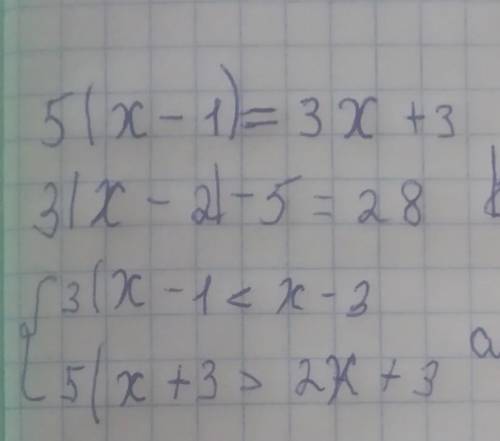 5(x-1)=3x+3
3(x-2)-5=28
3(x-1<x-3
5(x+3>2x+3
a